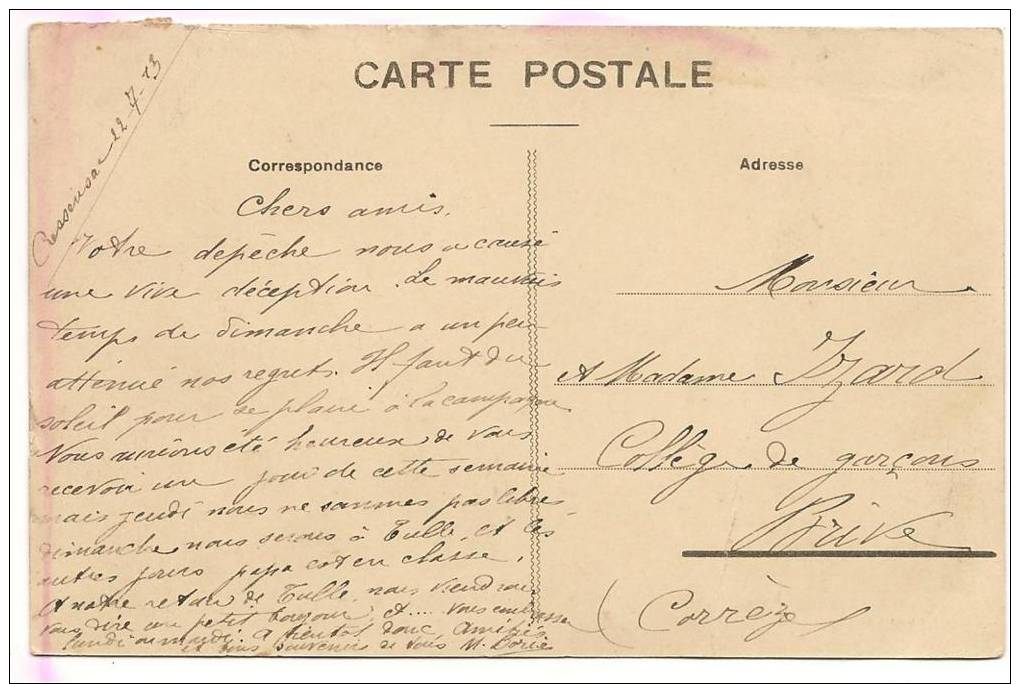 CARTE POSTALE
Correspondance
22-7-13
Chers amis.
Votre depêche nous a causé
une vive déception. Le mauvais
temps de dimanche a un peu
atténué nos regrets. Il faut du
soleil pour se plaire à la campagne
Nous aurions été heureux de vous
recevoir un jour de cette semaine
mais jeudi nous ne sommes pas libres
dimanche nous serons à Tulle, et les
autres jours papa est en classe.
A notre retour de Tulle, nous viendrons
vous dire un petit bonjour, et.... vous embrasser
lundi ou mardi. A bientôt donc. Amitiés
et bons souvenirs de tous
Adresse
Monsieur
et Madame Izard
Collège de garçons
Brive
(Corrèze)